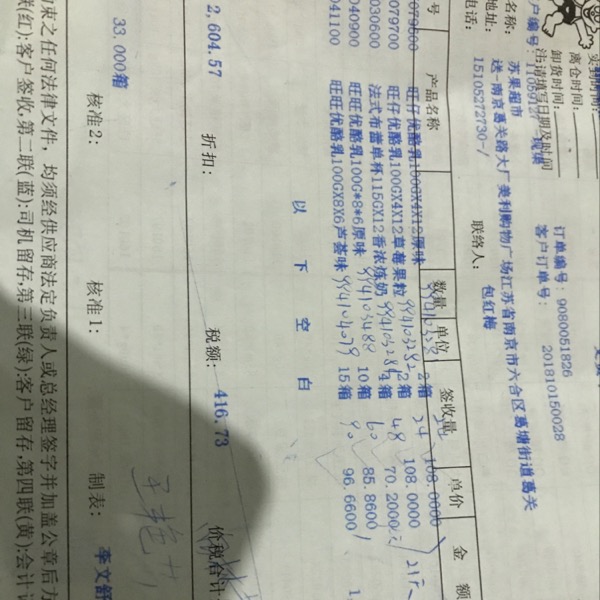 离仓时间:
卸货时间:
注:请填写日期及时间
订单编号: 9080051826
客户订单号: 201810150028
户编号: 11059127
名称: 苏果超市
地址: 送-南京葛关路大厂美利购物广场江苏省南京市六合区葛塘街道葛关
电话: 15105272730-/
联络人: 包红梅
号 产品名称 数量 单位 签收量 单价 金额
079600 旺仔优酪乳100GX4X12原味 2箱 24 108.0000
079700 旺仔优酪乳100GX4X12草莓果粒 2箱 48 108.0000
030600 法式布蕾单杯115GX12香浓炼奶 4箱 70.2000
040900 旺旺优酪乳100G*8*6原味 10箱 60 85.8600
041100 旺旺优酪乳100GX8X6芦荟味 15箱 90 96.6600
以下空白
2,604.57 折扣: 税额: 416.73 价税合计
33.000箱 核准2: 核准1: 制表: 李文舒
束之任何法律文件, 均须经供应商法定负责人或总经理签字并加盖公章后方
联(红):客户签收,第二联(蓝):司机留存,第三联(绿):客户留存,第四联(黄):会计